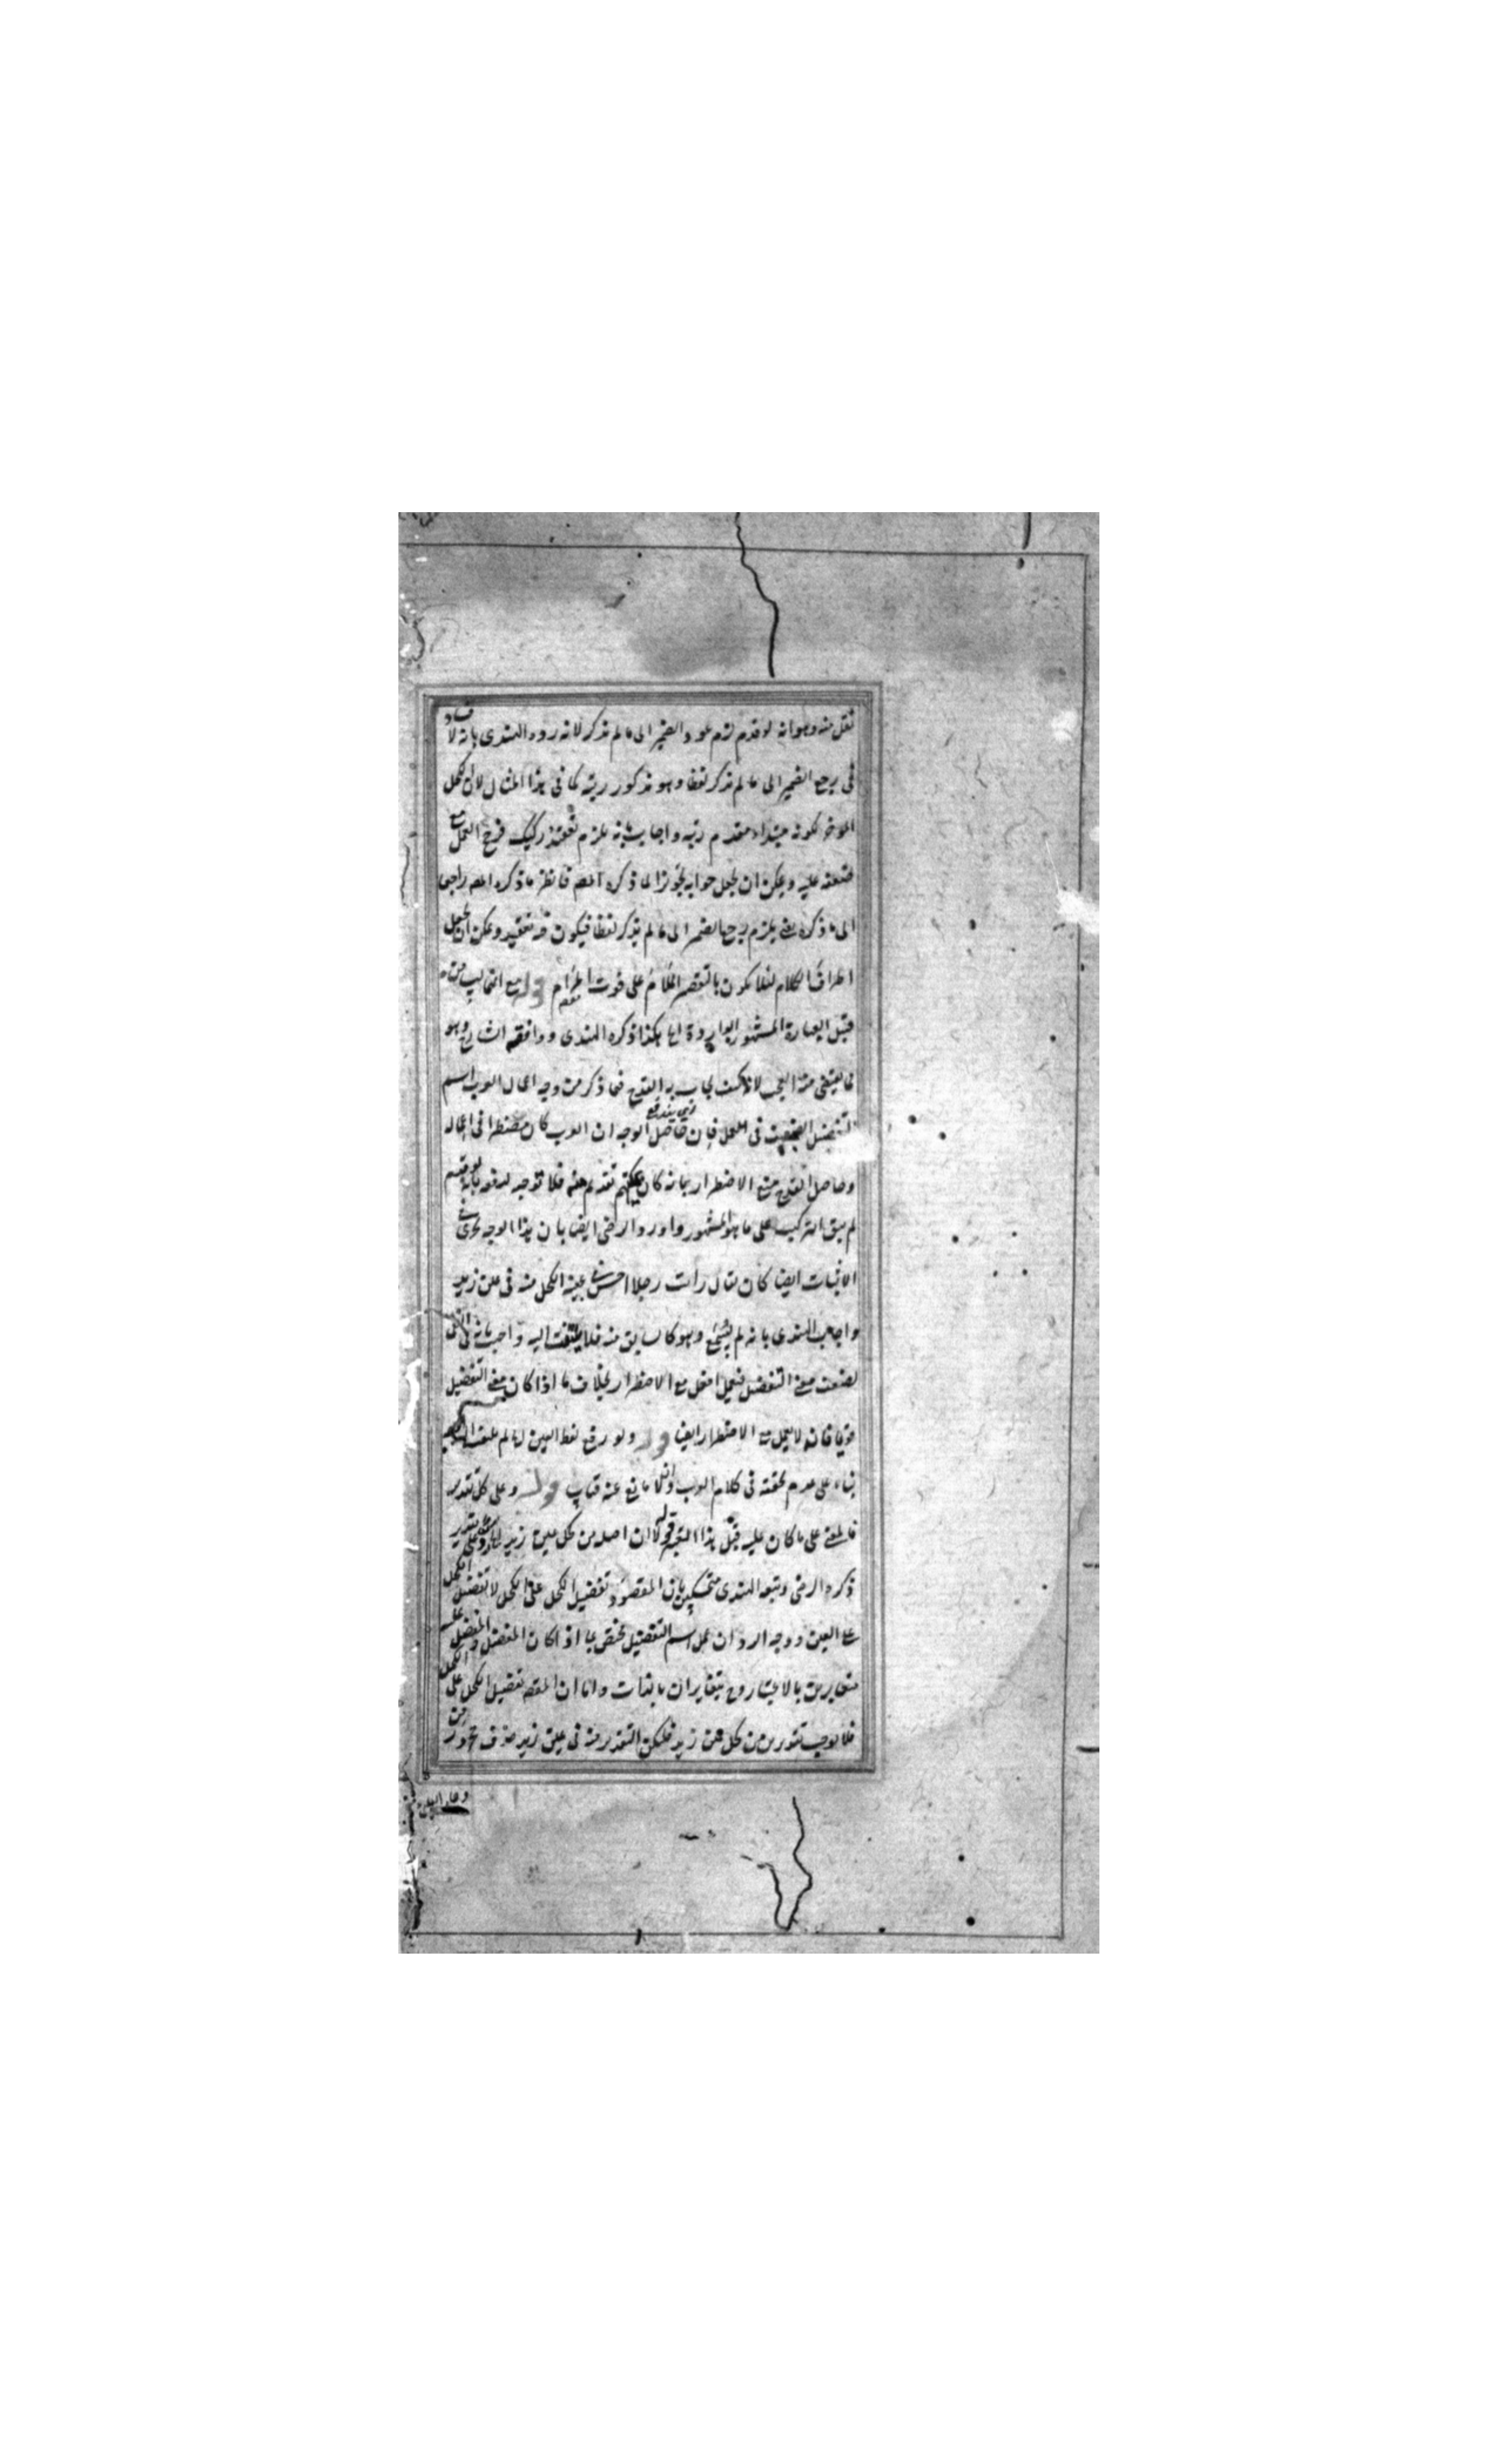 نقل منه وهو انه لو قدم لزم عود الضمير الى ما لم يذكر لانه رده الهندى بانه لا فساد
فى رجع الضمير الى ما لم يذكر لفظا وهو مذكور رتبة كما فى هذا المثال لان الكحل
المؤخر لكونه مبتداء مقدم رتبة واجاب بانه يلزم تعقيد ركيك فرجح العمل مع
ضعفه عليه ويمكن ان يجعل جوابه لما ذكره المصم فانظر ما ذكره المصم راجعا
الى ما ذكره يعنى يلزم رجع الضمير الى ما لم يذكر لفظا فيكون فيه تعقيد ويمكن ان يجعل
اطراف الكلام على فوت المرام قوله مع
قبل العبارة المشهورة الواردة هكذا ذكره الهندى ووافقه الشارح وهو
مما يقضى منه العجب به القدح فيما ذكر من وجه اعمال العرب اسم
التفضيل الضعيف فى العمل فان حاصل الوجه ان العرب كان مضطرا فى اعماله
وحاصل القدح منع الاضطرار بانه كان يمكنهم تقديم منه فلا توجيه لدفعه بانه لو قدم
لم يبق التركيب على ما هو المشهور واورد الرضى ايضا بان هذا الوجه يجرى فى
الاثبات ايضا كان يقال رأيت رجلا احسن فى عينه الكحل منه فى عين زيد
واجاب الهندى بانه لم يشع وهو كالسابق منه فلا يلتفت اليه واجيب بانه فى النفى
لضعف معنى التفضيل فيعمل افعل مع الاضطرار بخلاف ما اذا كان معنى التفضيل
قويا فانه لا يعمل مع الاضطرار ايضا قوله ولو رفع لفظ العين لما لم يلتفت
بناء على عدم تحققه فى كلام العرب والا فلا مانع عنه قياسا قوله وعلى كل تقدير
فالمعنى على ما كان عليه قبل هذا التغيير قوله لان اصله من كحل عين زيد
ذكره الرضى وتبعه الهندى متمسكين بان المقصود تفضيل الكحل على الكحل لا تفضيل الكحل
على العين ووجه الرد ان عمل اسم التفضيل يختص بما اذا كان المفضل والمفضل عليه
متغايرين بالاعتبار وح يتغايران بالذات واما ان المقصود تفضيل الكحل على الكحل
فلا يوجب تقدير من كحل عين زيد فليكن التقدير منه فى عين زيد حذف من